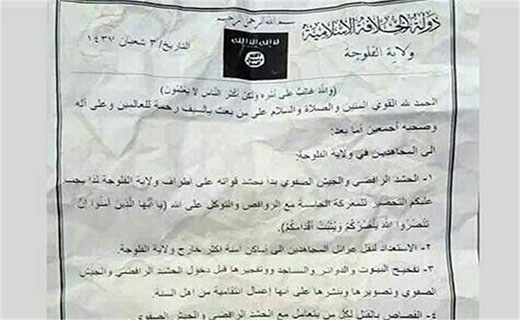 بسم الله الرحمن الرحيم
دولة الخلافة الإسلامية
ولاية الفلوجة
التاريخ/ ٣ شعبان ١٤٣٧
لا اله الا الله
الله رسول محمد
(والله غالب على أمره ولكن أكثر الناس لا يعلمون)
الحمد لله القوي المتين والصلاة والسلام على من بعث بالسيف رحمة للعالمين وعلى آله
وصحبه أجمعين أما بعد:
الى المجاهدين في ولاية الفلوجة:
١- الحشد الرافضي والجيش الصفوي بدأ بحشد قواته على اطراف ولاية الفلوجة لذا يجب
عليكم التحضير للمعركة الحاسمة مع الروافض والتوكل على الله (يا أيها الذين آمنوا إن
تنصروا الله ينصركم ويثبت أقدامكم).
٢- الاستعداد لنقل عوائل المجاهدين الى أماكن آمنة اكثر خارج ولاية الفلوجة.
٣- تفخيخ البيوت والدوائر والمساجد وتفجيرها قبل دخول الحشد الرافضي والجيش
الصفوي وتصويرها ونشرها على أنها إعمال انتقامية من اهل السنة.
٤- القصاص بالقتل لكل من يتعامل مع الحشد الرافضي والجيش الصفوي